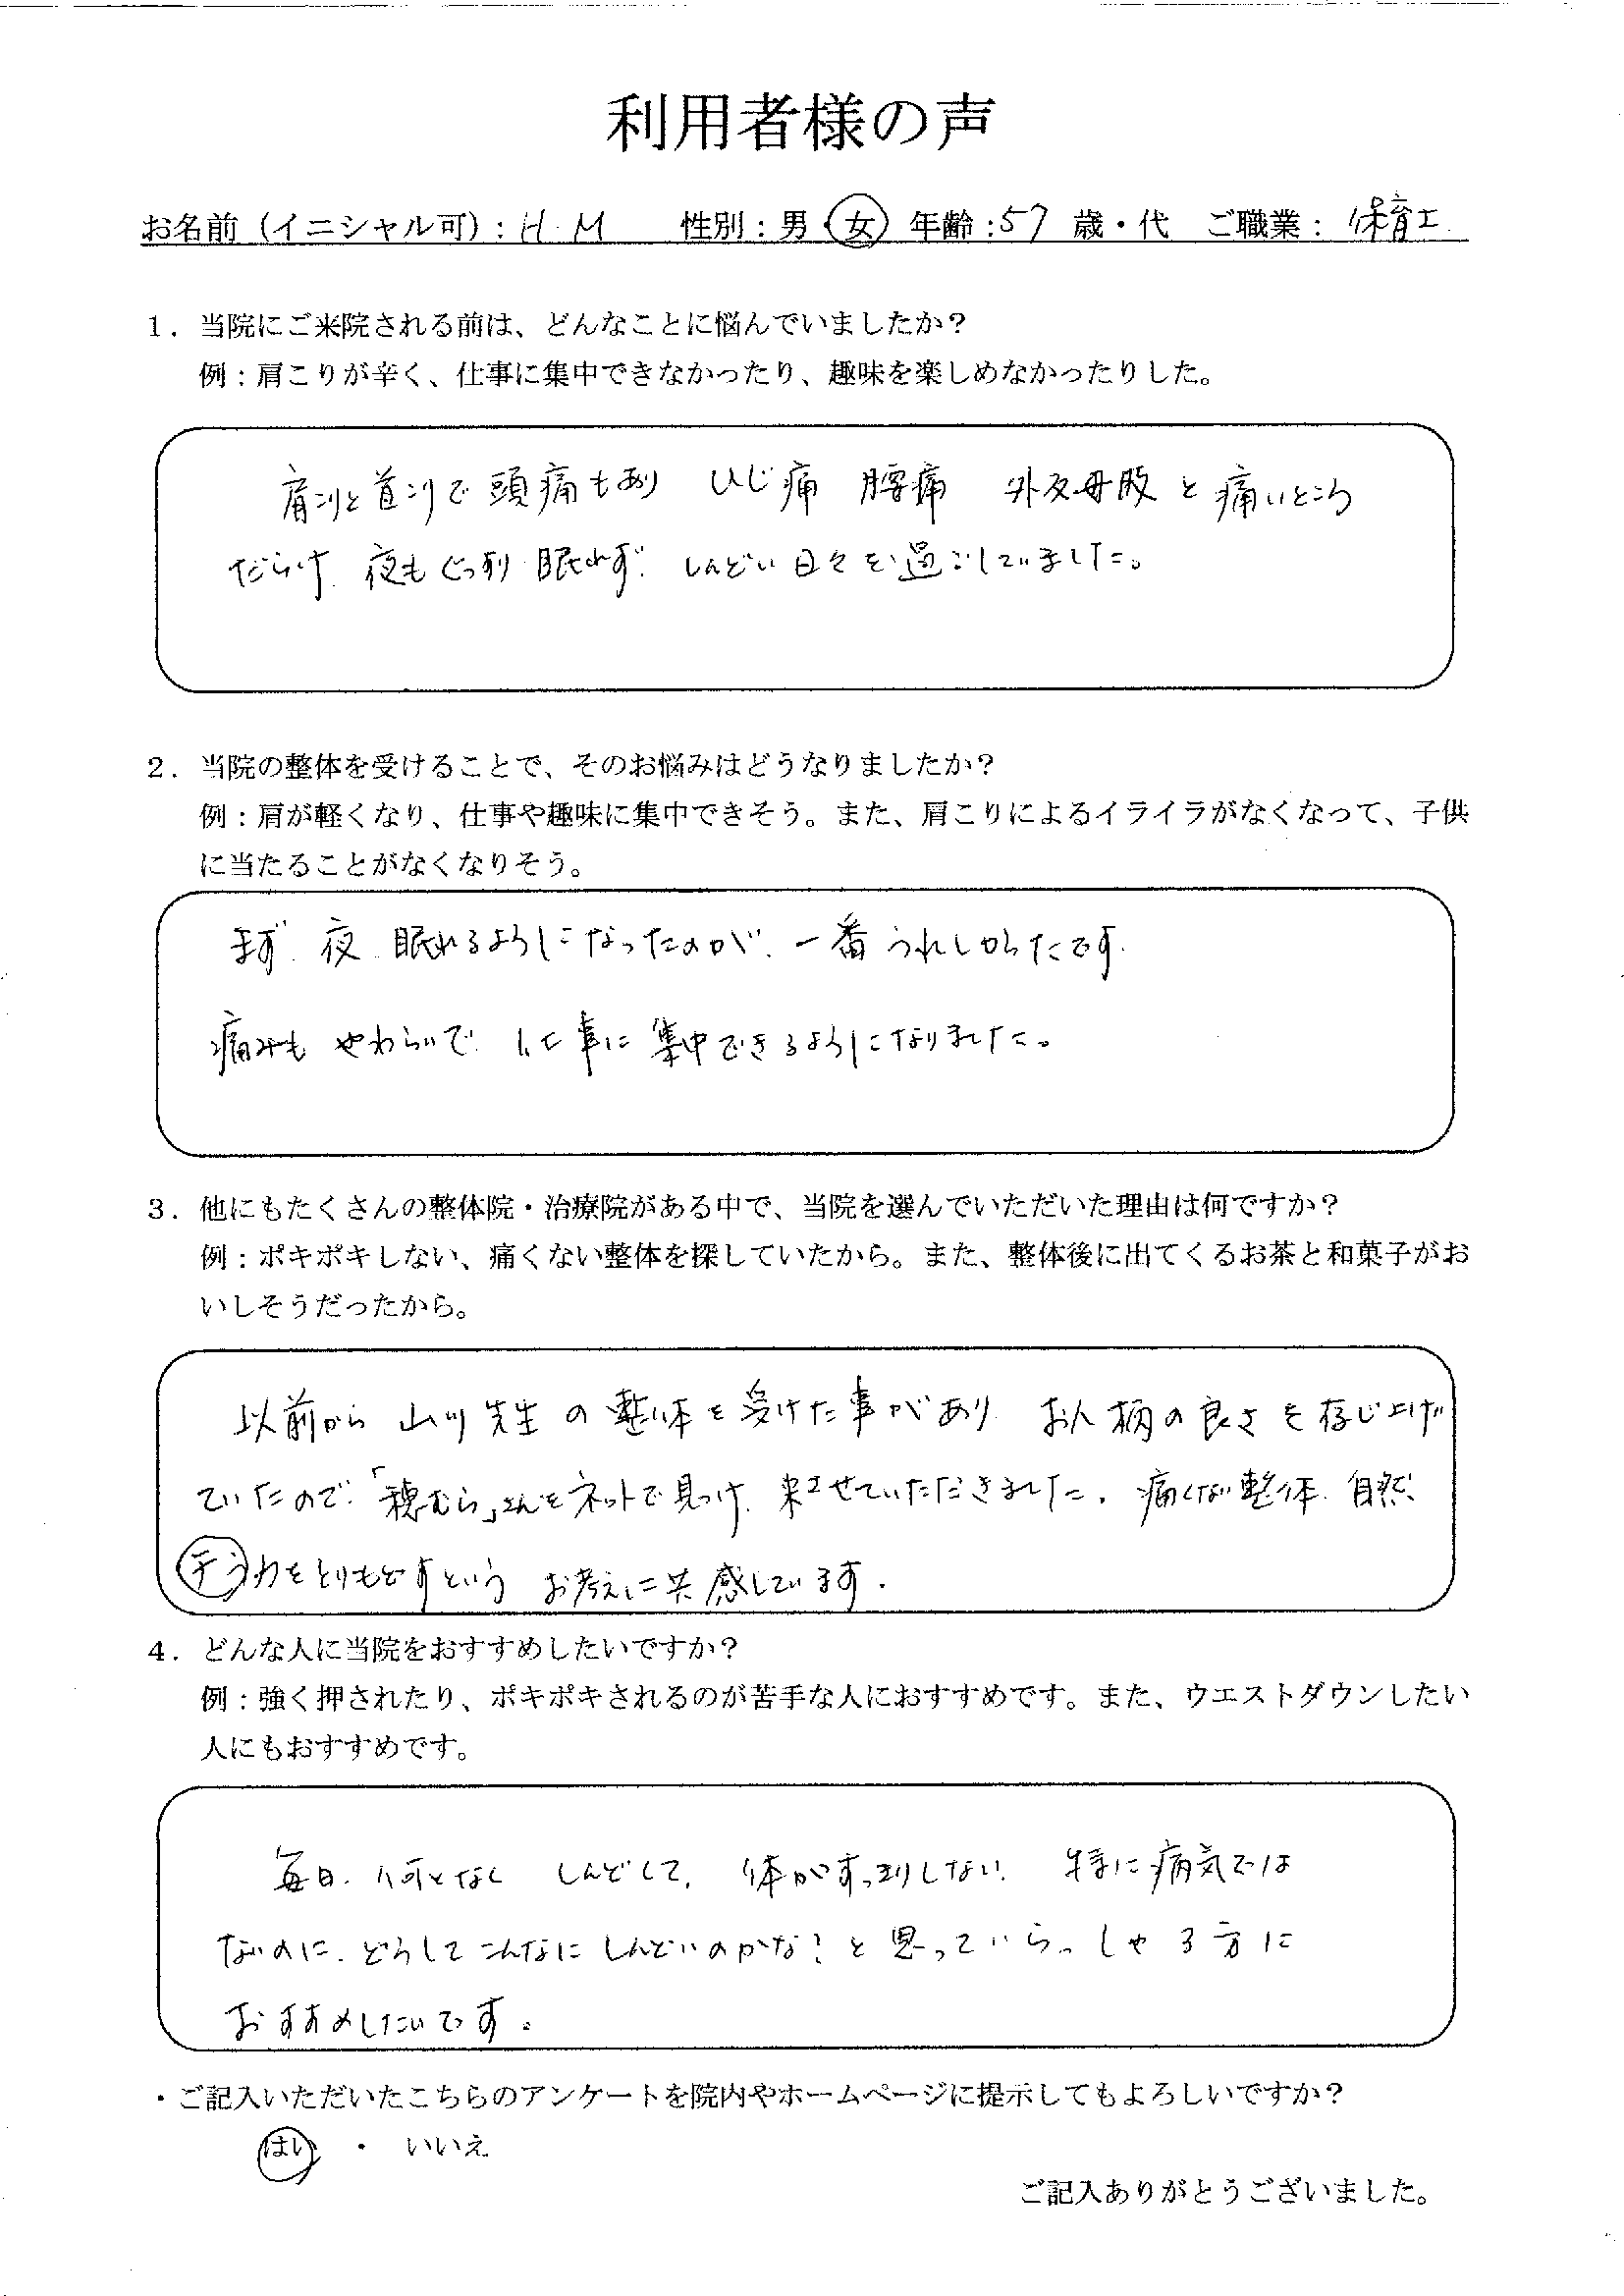 利用者様の声
お名前（イニシャル可）：H.M 性別：男・女 年齢：57 歳・代 ご職業：保育士
１．当院にご来院される前は、どんなことに悩んでいましたか？
例：肩こりが辛く、仕事に集中できなかったり、趣味を楽しめなかったりした。
肩こりと首こりで頭痛もあり ひじ痛 腰痛 外反母趾と痛いところ
だらけ、夜もぐっすり眠れず、しんどい日々を過ごしていました。
２．当院の整体を受けることで、そのお悩みはどうなりましたか？
例：肩が軽くなり、仕事や趣味に集中できそう。また、肩こりによるイライラがなくなって、子供
に当たることがなくなりそう。
まず、夜、眠れるようになったのが、一番うれしかったです。
痛みもやわらいで、仕事に集中できるようになりました。
３．他にもたくさんの整体院・治療院がある中で、当院を選んでいただいた理由は何ですか？
例：ポキポキしない、痛くない整体を探していたから。また、整体後に出てくるお茶と和菓子がお
いしそうだったから。
以前から山川先生の整体を受けた事があり、お人柄の良さを存じ上げ
ていたので、「穂むら」さんをネットで見つけ、来させていただきました。痛くない整体、自然
力をとりもどすという お考えに共感しています。
４．どんな人に当院をおすすめしたいですか？
例：強く押されたり、ポキポキされるのが苦手な人におすすめです。また、ウエストダウンしたい
人にもおすすめです。
毎日、何となく しんどくて、体がすっきりしない、特に病気では
ないのに、どうしてこんなにしんどいのかな？と思っていらっしゃる方に
おすすめしたいです。
・ご記入いただいたこちらのアンケートを院内やホームページに提示してもよろしいですか？
はい ・ いいえ
ご記入ありがとうございました。